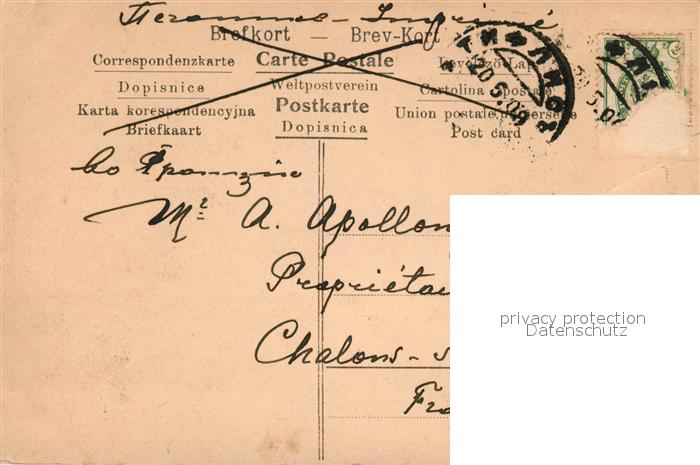 Печатное - Imprimé
Brefkort — Brev-Kort
Correspondenzkarte Carte Postale Levelező-Lap
Dopisnice Weltpostverein Cartolina postale
Karta korespondencyjna Postkarte Union postale universelle
Briefkaart Dopisnica Post card
ТИФЛИСЪ
20 5 09
Во Францію
Mr A. Apollon
Propriétai
Chalons-s
Fra
privacy protection
Datenschutz